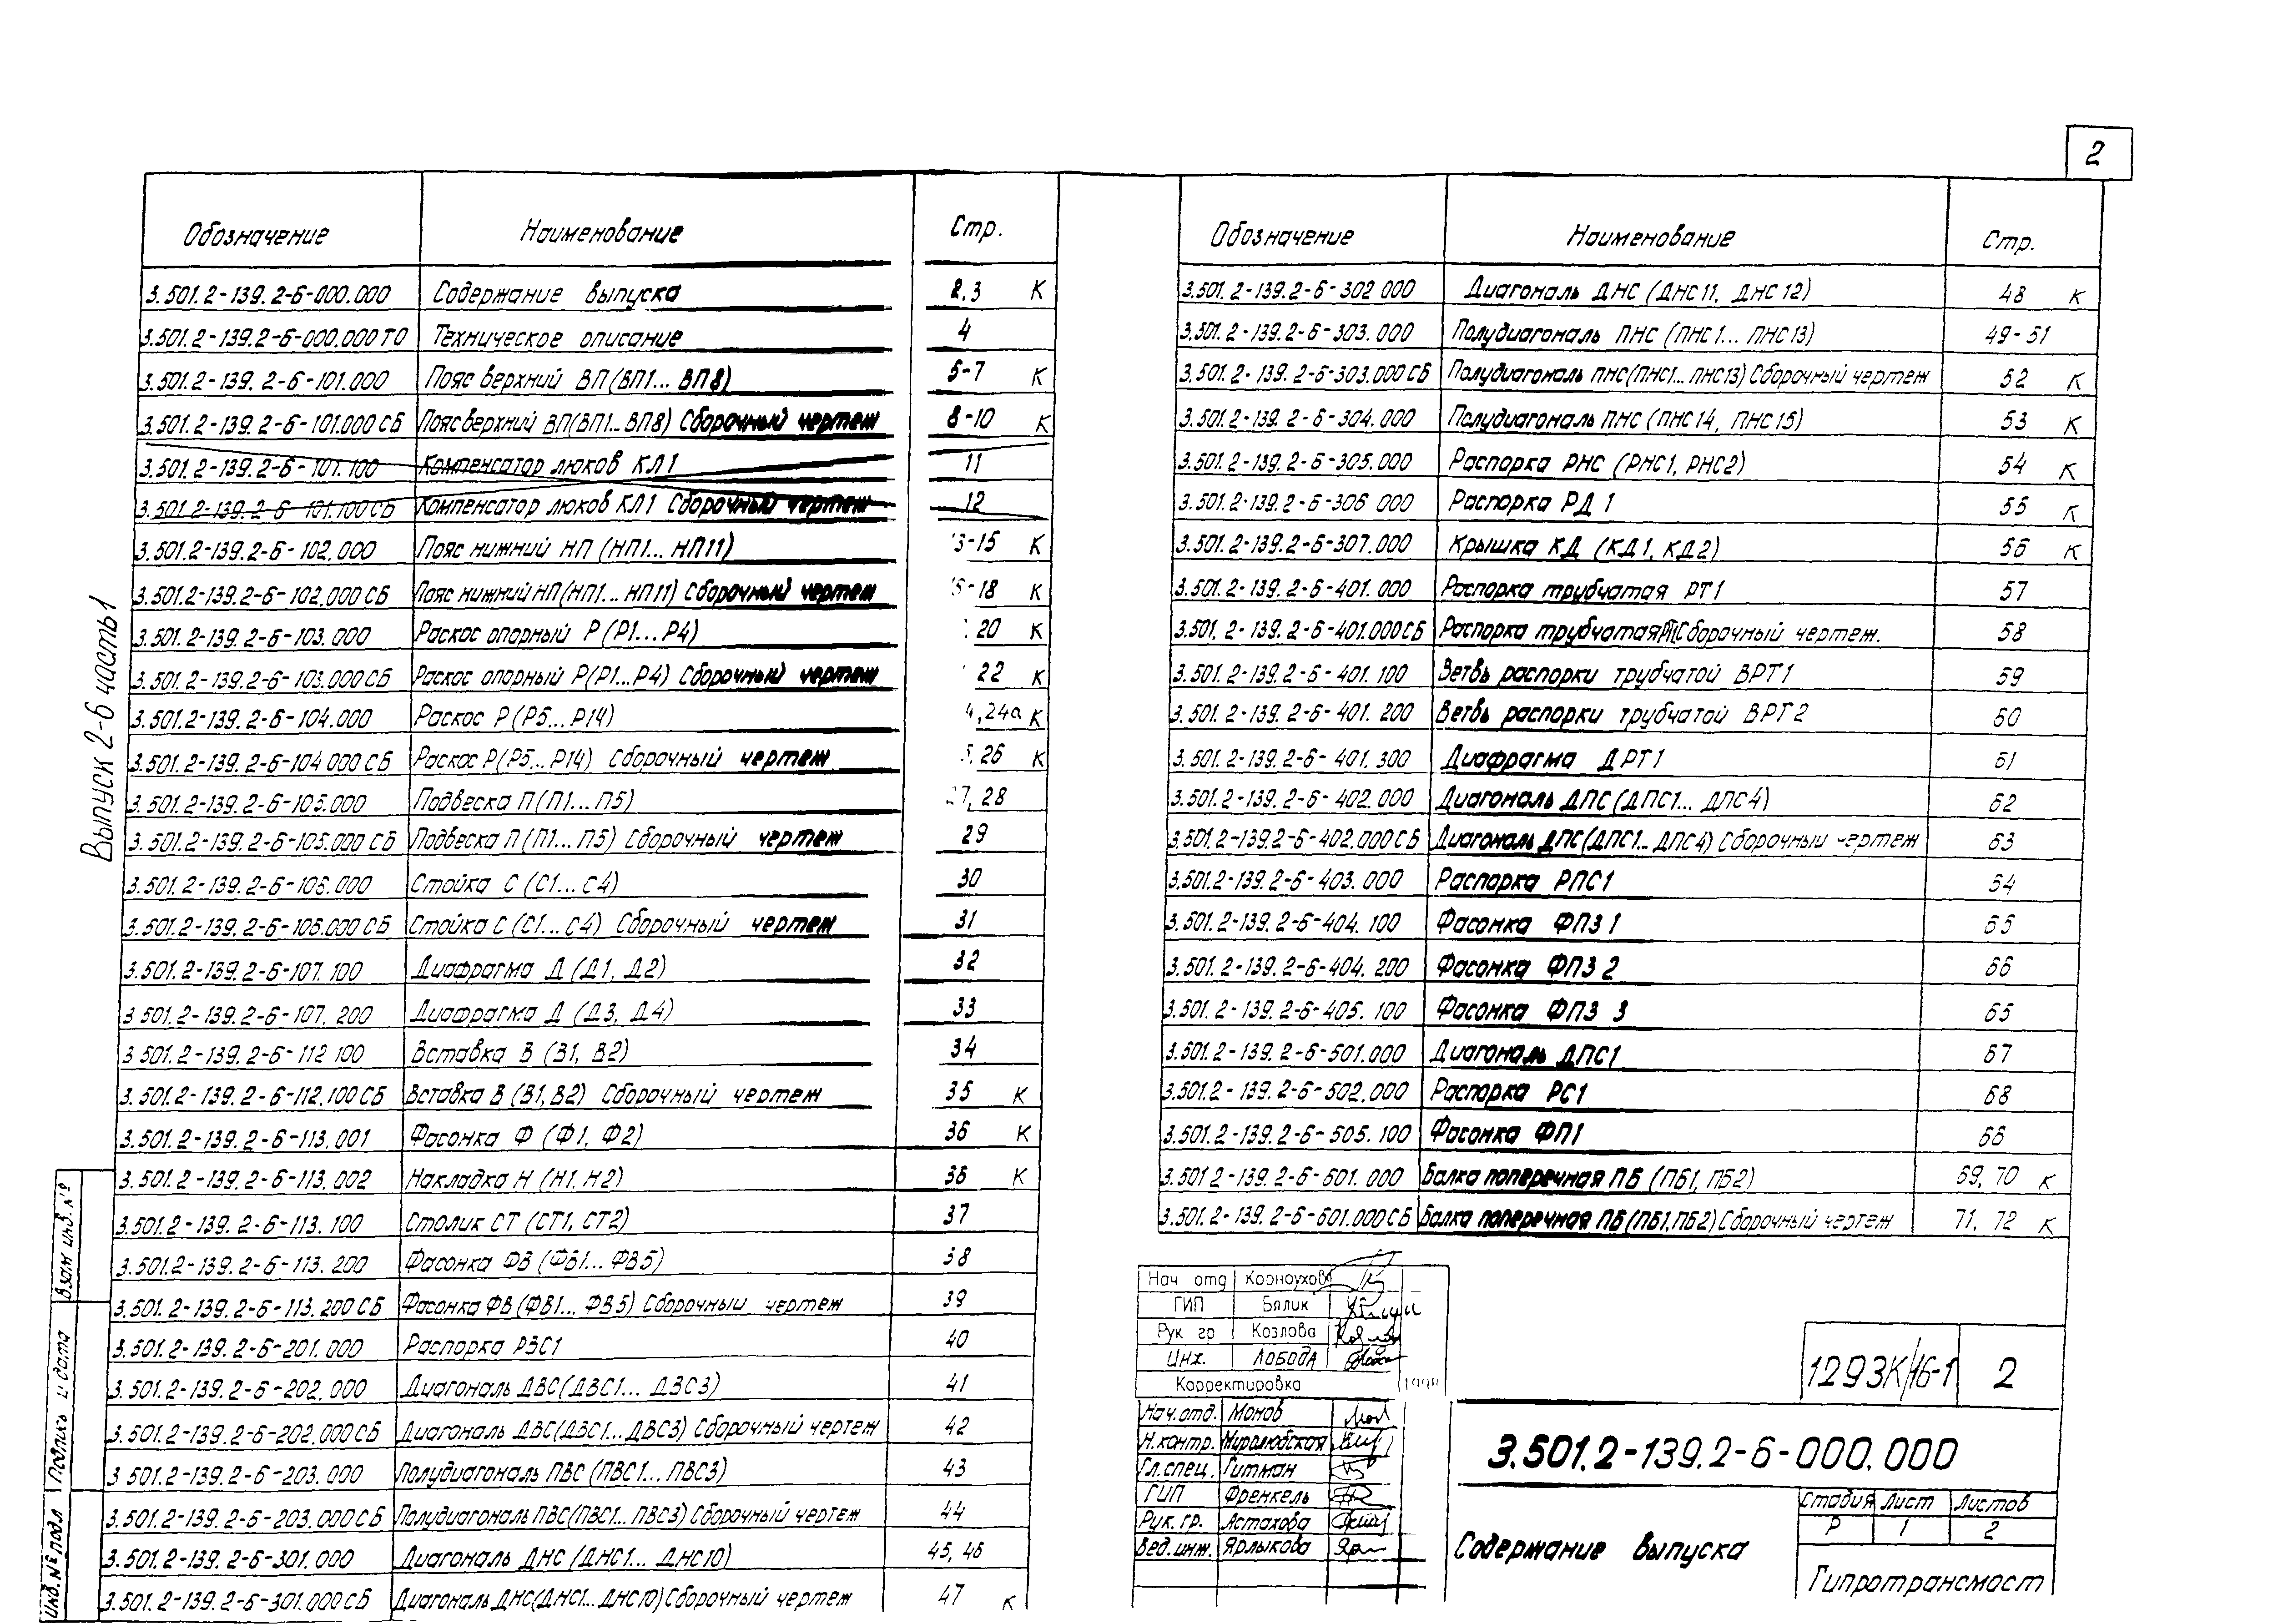 2
Обозначение Наименование Стр.
3.501.2-139.2-6-000.000 Содержание выпуска 2,3 К
3.501.2-139.2-6-000.000ТО Техническое описание 4
3.501.2-139.2-6-101.000 Пояс верхний ВП (ВП1... ВП8) 5-7 К
3.501.2-139.2-6-101.000СБ Пояс верхний ВП(ВП1...ВП8) Сборочный чертеж 8-10 К
3.501.2-139.2-6-101.100 Компенсатор люков КЛ1 11
3.501.2-139.2-6-101.100СБ Компенсатор люков КЛ1 Сборочный чертеж 12
3.501.2-139.2-6-102.000 Пояс нижний НП (НП1... НП11) 3-15 К
3.501.2-139.2-6-102.000СБ Пояс нижний НП(НП1...НП11) Сборочный чертеж 6-18 К
3.501.2-139.2-6-103.000 Раскос опорный Р (Р1...Р4) 20 К
3.501.2-139.2-6-103.000СБ Раскос опорный Р(Р1...Р4) Сборочный чертеж 22 К
3.501.2-139.2-6-104.000 Раскос Р (Р5... Р14) 4,24а К
3.501.2-139.2-6-104 000СБ Раскос Р(Р5...Р14) Сборочный чертеж 5,26 К
3.501.2-139.2-6-105.000 Подвеска П (П1... П5) 27, 28
3.501.2-139.2-6-105.000СБ Подвеска П (П1... П5) Сборочный чертеж 29
3.501.2-139.2-6-106.000 Стойка С (С1... С4) 30
3.501.2-139.2-6-106.000СБ Стойка С (С1... С4) Сборочный чертеж 31
3.501.2-139.2-6-107.100 Диафрагма Д (Д1, Д2) 32
3.501.2-139.2-6-107.200 Диафрагма Д (Д3, Д4) 33
3 501.2-139.2-6-112 100 Вставка В (В1, В2) 34
3.501.2-139.2-6-112.100СБ Вставка В (В1, В2) Сборочный чертеж 35 К
3.501.2-139.2-6-113.001 Фасонка Ф (Ф1, Ф2) 36 К
3.501.2-139.2-6-113.002 Накладка Н (Н1, Н2) 36 К
3.501.2-139.2-6-113.100 Столик СТ (СТ1, СТ2) 37
3.501.2-139.2-6-113.200 Фасонка ФВ (ФВ1... ФВ5) 38
3.501.2-139.2-6-113.200СБ Фасонка ФВ (ФВ1... ФВ5) Сборочный чертеж 39
3.501.2-139.2-6-201.000 Распорка РВС1 40
3.501.2-139.2-6-202.000 Диагональ ДВС(ДВС1... ДВС3) 41
3.501.2-139.2-6-202.000СБ Диагональ ДВС(ДВС1...ДВС3) Сборочный чертеж 42
3 501.2-139.2-6-203.000 Полудиагональ ПВС (ПВС1... ПВС3) 43
3.501.2-139.2-6-203.000СБ Полудиагональ ПВС(ПВС1...ПВС3) Сборочный чертеж 44
3.501.2-139.2-6-301.000 Диагональ ДНС (ДНС1... ДНС10) 45, 46
3.501.2-139.2-6-301.000СБ Диагональ ДНС(ДНС1...ДНС10) Сборочный чертеж 47 К
Обозначение Наименование Стр.
3.501.2-139.2-6-302 000 Диагональ ДНС (ДНС11, ДНС12) 48 К
3.501.2-139.2-6-303.000 Полудиагональ ПНС (ПНС1... ПНС13) 49-51
3.501.2-139.2-6-303.000СБ Полудиагональ ПНС(ПНС1...ПНС13) Сборочный чертеж 52 К
3.501.2-139.2-6-304.000 Полудиагональ ПНС (ПНС14, ПНС15) 53 К
3.501.2-139.2-6-305.000 Распорка РНС (РНС1, РНС2) 54 К
3.501.2-139.2-6-306 000 Распорка РД 1 55 К
3.501.2-139.2-6-307.000 Крышка КД (КД1, КД2) 56 К
3.501.2-139.2-6-401.000 Распорка трубчатая РТ1 57
3.501.2-139.2-6-401.000СБ Распорка трубчатая РТ1 Сборочный чертеж. 58
3.501.2-139.2-6-401.100 Ветвь распорки трубчатой ВРТ1 59
3.501.2-139.2-6-401.200 Ветвь распорки трубчатой ВРТ2 60
3.501.2-139.2-6-401.300 Диафрагма ДРТ1 61
3.501.2-139.2-6-402.000 Диагональ ДПС (ДПС1... ДПС4) 62
3.501.2-139.2-6-402.000СБ Диагональ ДПС(ДПС1... ДПС4) Сборочный чертеж 63
3.501.2-139.2-6-403.000 Распорка РПС1 64
3.501.2-139.2-6-404.100 Фасонка ФПЗ 1 65
3.501.2-139.2-6-404.200 Фасонка ФПЗ 2 66
3.501.2-139.2-6-405.100 Фасонка ФПЗ 3 65
3.501.2-139.2-6-501.000 Диагональ ДПС1 67
3.501.2-139.2-6-502.000 Распорка РС1 68
3.501.2-139.2-6-505.100 Фасонка ФП1 66
3.501 2-139.2-6-601.000 Балка поперечная ПБ (ПБ1, ПБ2) 69, 70 К
3.501.2-139.2-6-601.000СБ Балка поперечная ПБ (ПБ1, ПБ2) Сборочный чертеж 71, 72 К
Выпуск 2-6 часть 1
Взам инв. №
Подпись и дата
Инв. № подл
Нач отд Корноухов
ГИП Бялик
Рук гр Козлова
Инж. ЛОБОДА
Корректировка
Нач.отд. Монов
Н.контр. Миролюбская
Гл.спец. Гитман
ГИП Френкель
Рук.гр. Астахова
Вед.инж. Ярлыкова
1293К/16-1 2
3.501.2-139.2-6-000.000
Содержание выпуска
Стадия Лист Листов
Р 1 2
Гипротрансмост